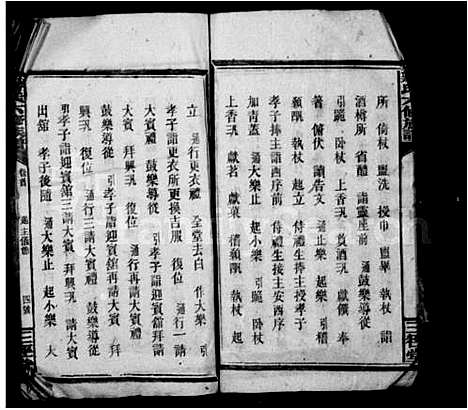 所　倚杖　盥洗　授巾　盥畢　執杖　詣
酒樽所　省醴　詣靈座前　通大樂止　起小樂
引跪　卧杖　上香　酹酒　獻饌　奉
箸　俯伏　讀告文　通止樂　起樂　引
興　執杖　起立　侍禮生捧主授孝子
孝子捧主詣西序前　侍禮生接主安西序
加青蓋　通大樂止　起小樂　引跪　卧杖
上香　獻茗　獻菓　稽顙　執杖　起
立　通行更衣禮　全堂去白　作大樂　引
孝子詣更衣所更換吉服　復位　通行一請
大賓禮　鼓樂導從　引孝子詣迎賓舘拜請
大賓　拜興　復位　通行再請大賓禮
鼓樂導從　引孝子詣迎賓舘再請大賓　拜
興　復位　通行三請大賓禮　鼓樂導從
引孝子詣迎賓舘三請大賓　拜興　請大賓
出舘　孝子後隨　通大樂止　起小樂　大
卷首
主儀節
四號